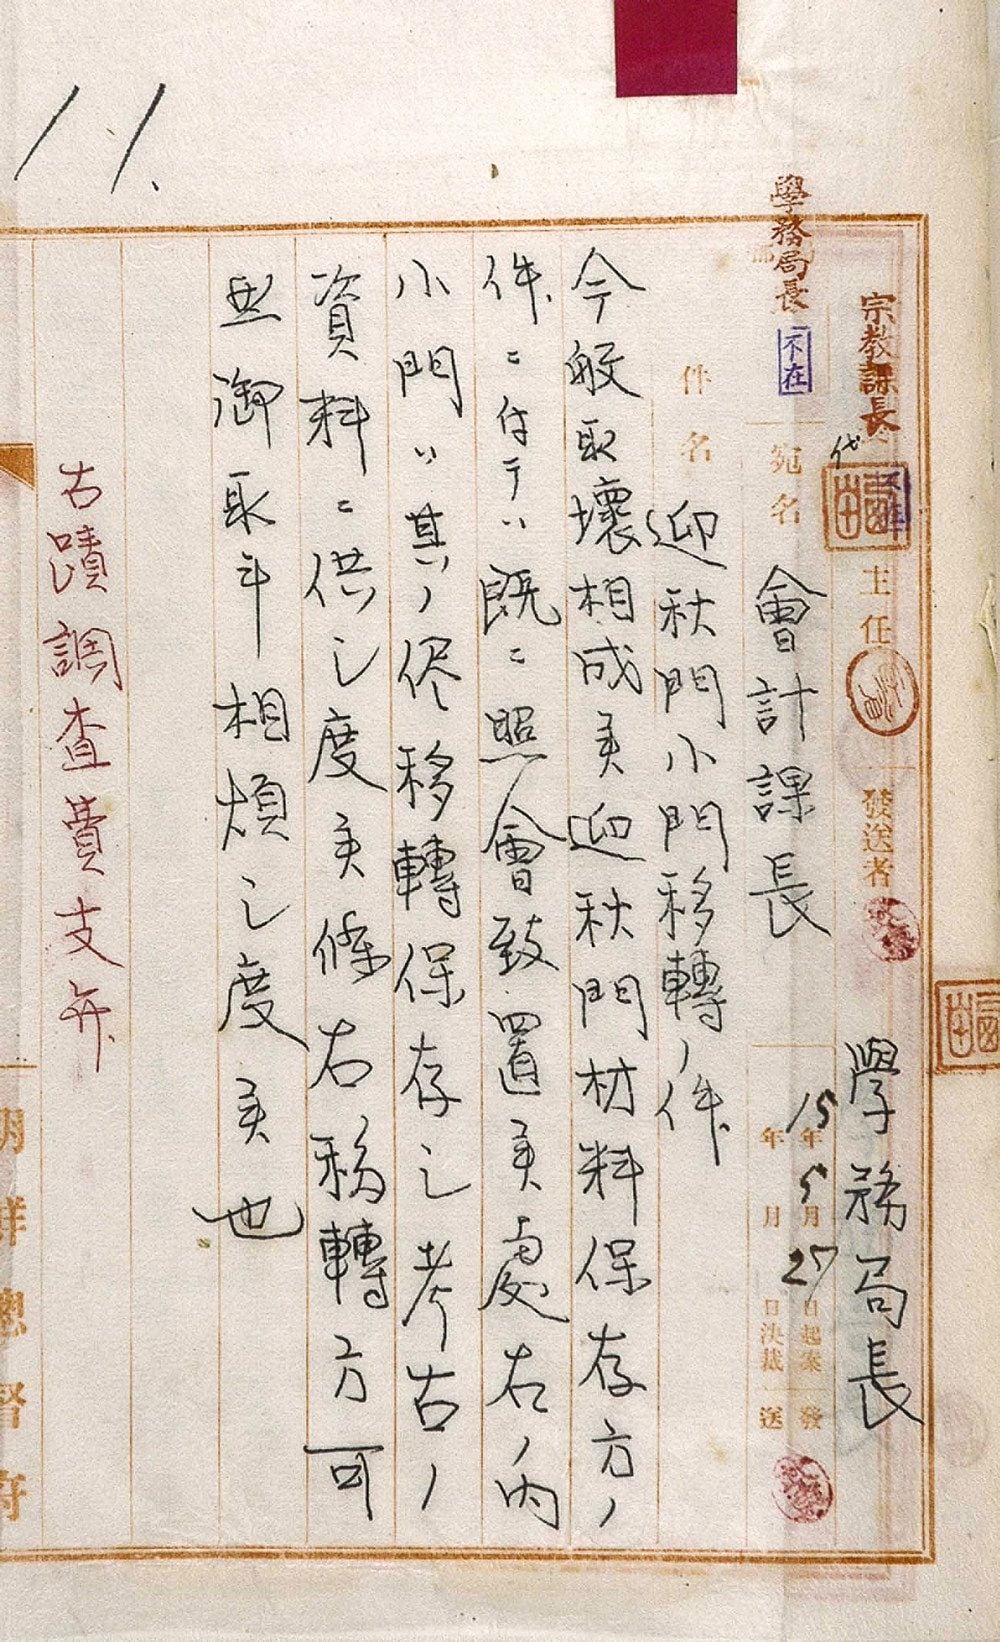 11.
宗教課長
代
主任
發送者
學務局長
學務局長
不在
15年5月27日起案
發
年 月 日決裁
送
宛名
會計課長
件名
迎秋門小門移轉ノ件
今般取壞相成候迎秋門材料保存方ノ
件ニ付テハ既ニ照會致置候處右ノ內
小門ハ其ノ儘移轉保存シ考古ノ
資料ニ供シ度候條右移轉方可
然御取計相煩シ度候也
古蹟調査費支弁
朝鮮總督府